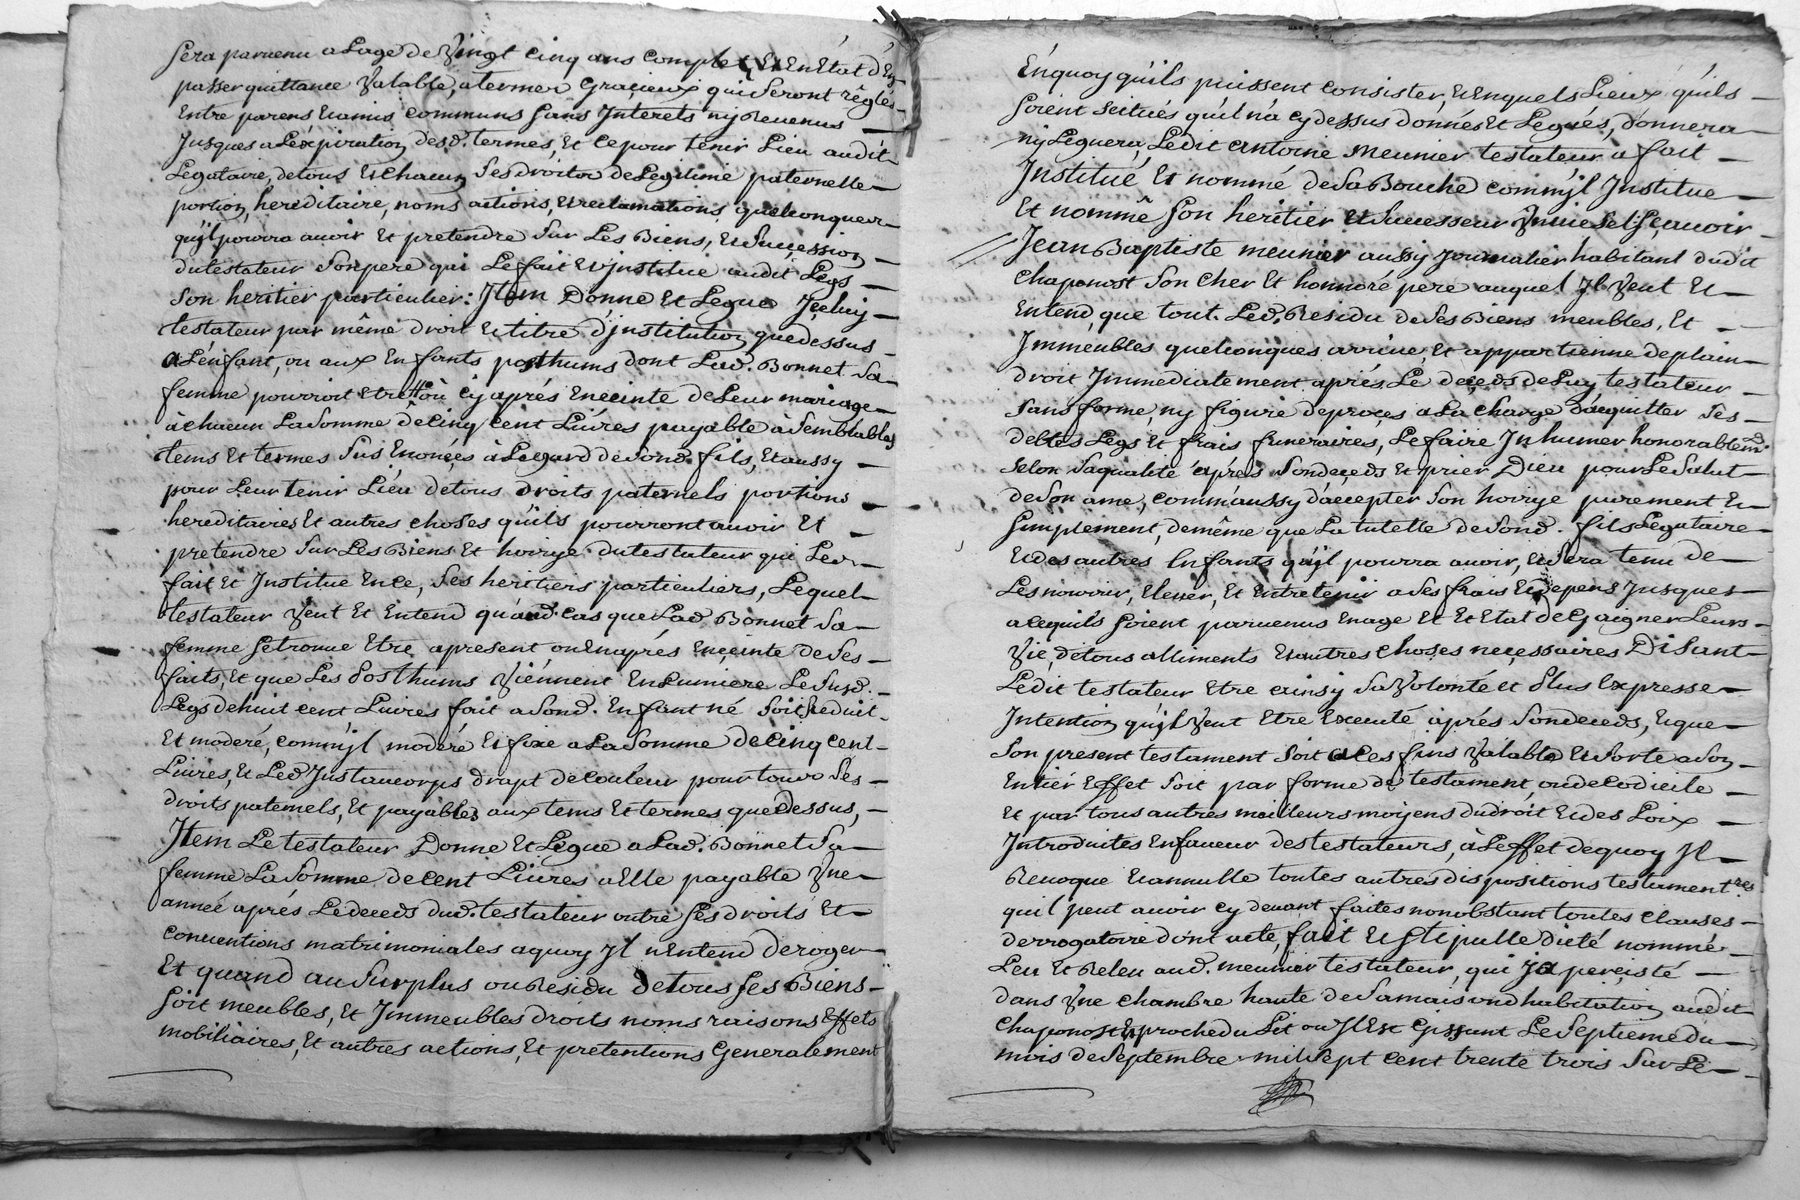 sera parvenu a Lage de Vingt cinq ans complet, Et En Etat d'En
passer quittance Valable, a termes Gracieux qui Seront réglés
Entre parens Et amis communs sans Interets ny Revenus
Jusques a L'expiration desd. termes, Et ce pour tenir Lieu audit
Legataire, de tous Et chacun Ses droits de Legitime paternelle
portion, hereditaire, noms actions, Et reclamations quelconques
qu'jl pourra avoir Et pretendre Sur Les Biens, Et Succession
du testateur Son pere qui Le fait Et jnstitue audit Legs
Son heritier particulier: Jtem Donne Et Legue Jceluy
testateur par même droit Et titre d'jnstitution que dessus
a L'enfant, ou aux Enfants posthums dont Lad. Bonnet Sa
femme pourroit etre ou cy aprés Enceinte de Leur mariage
à chacun La Somme de Cinq cent Livres payable à Semblables
tems Et termes Sus Enoncés à L'egard de Sond. fils, Et aussy
pour Leur tenir Lieu de tous droits paternels portions
hereditaires Et autres choses qu'ils pourront avoir Et
pretendre Sur Les Biens Et hoirye du testateur qui Les
fait Et Jnstitue En ce, Ses heritiers particuliers, Lequel
testateur Veut Et Entend qu'aud. cas que Lad. Bonnet Sa
femme Se trouve Etre apresent ou En aprés Enceinte de Ses
faits, Et que Les Posthums Viénnent En Lumiere Le Susd.
Legs de huit cent Livres fait a Sond. Enfant né Soit Reduit
Et moderé, comm'jl modere Et fixe a La Somme de Cinq cent
Livres, Et Led. Justaucorps drapt de Couleur pour tous Ses
droits paternels, Et payables aux tems Et termes que dessus,
Jtem Le testateur Donne Et Legue a Lad. Bonnet Sa
femme La Somme de Cent Livres a Elle payable Vne
année aprés Le deceds dud. testateur outre Ses droits Et
conventions matrimoniales a quoy Jl n'Entend deroger
Et quand au Surplus ou Residu de tous Ses Biens
Soit meubles, Et Jmmeubles droits noms raisons Effets
mobiliaires, Et autres actions, Et pretentions Generalement
En quoy qu'ils puissent consister, Et En quels Lieux qu'ils
Soient Scitués qu'il n'a cy dessus donnés Et Legués, donnera
ny Leguera, Ledit Antoine Meunier testateur a fait
Jnstitué Et nommé de Sa Bouche comm'jl Jnstitue
Et nommê Son heritier Et Successeur Vniversel Sçavoir
Jean Baptiste meunier aussy Journalier habitant dudit
Chaponost Son Cher Et honnoré pere auquel Jl Veut Et
Entend que tout Led. Residu de Ses Biens meubles, Et
Jmmeubles quelconques arrive, Et appartienne de plain
droit Jmmediatement aprés Le deceds de Luy testateur
Sans forme, ny figure de procés a La charge d'acquitter Ses
debtes Legs Et frais funeraires, Le faire Jnhumer honorablemt.
Selon Sa qualité aprés Son deceds Et prier Dieu pour Le Salut
de Son ame, comm'aussy d'accepter Son hoirye purement Et
Simplement, de même que La tutelle de Sond. fils Legataire
Et des autres Enfants qu'jl pourra avoir, Et Sera tenu de
Les nourrir, Elever, Et Entretenir a Ses frais Et depens Jusques
a ce qu'ils Soient parvenus En age Et Et Etat de Gaigner Leurs
Vie, de tous alliments Et autres choses necessaires Disant
Ledit testateur Etre ainsy Sa Volonté et Plus Expresse
Jntention qu'jl Veut Etre Executé aprés Son deceds, Et que
Son present testament Soit a Ces fins Valable Et Sorte a Son
Entiér Effet Soit par forme de testament, ou de Codicile
Et par tous autres mailleurs moyens du droit Et des Loix
Jntroduites En faveur des testateurs, à L'effet de quoy Jl
Revoque Et annulle toutes autres dispositions testamentres
qu'il peut avoir Cy devant faites nonobstant toutes Clauses
derrogatoire dont acte, fait Et Stipulle dicté nommé
Leu Et Releu aud. meunier testateur, qui y a percisté
dans Vne chambre haute de Sa maison d'habitation audit
Chaponost Et proche du Lit ou Jl Est Gissant Le Septieme du
mois de Septembre mil Sept cent trente trois Sur Le